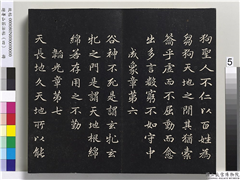 狗聖人不仁以百姓為
芻狗天地之間其猶橐
籥乎虛而不屈動而愈
出多言數窮不如守中
成象章第六
谷神不死是謂玄牝玄
牝之門是謂天地根綿
綿若存用之不勤
韜光章第七
天長地久天地所以能
5